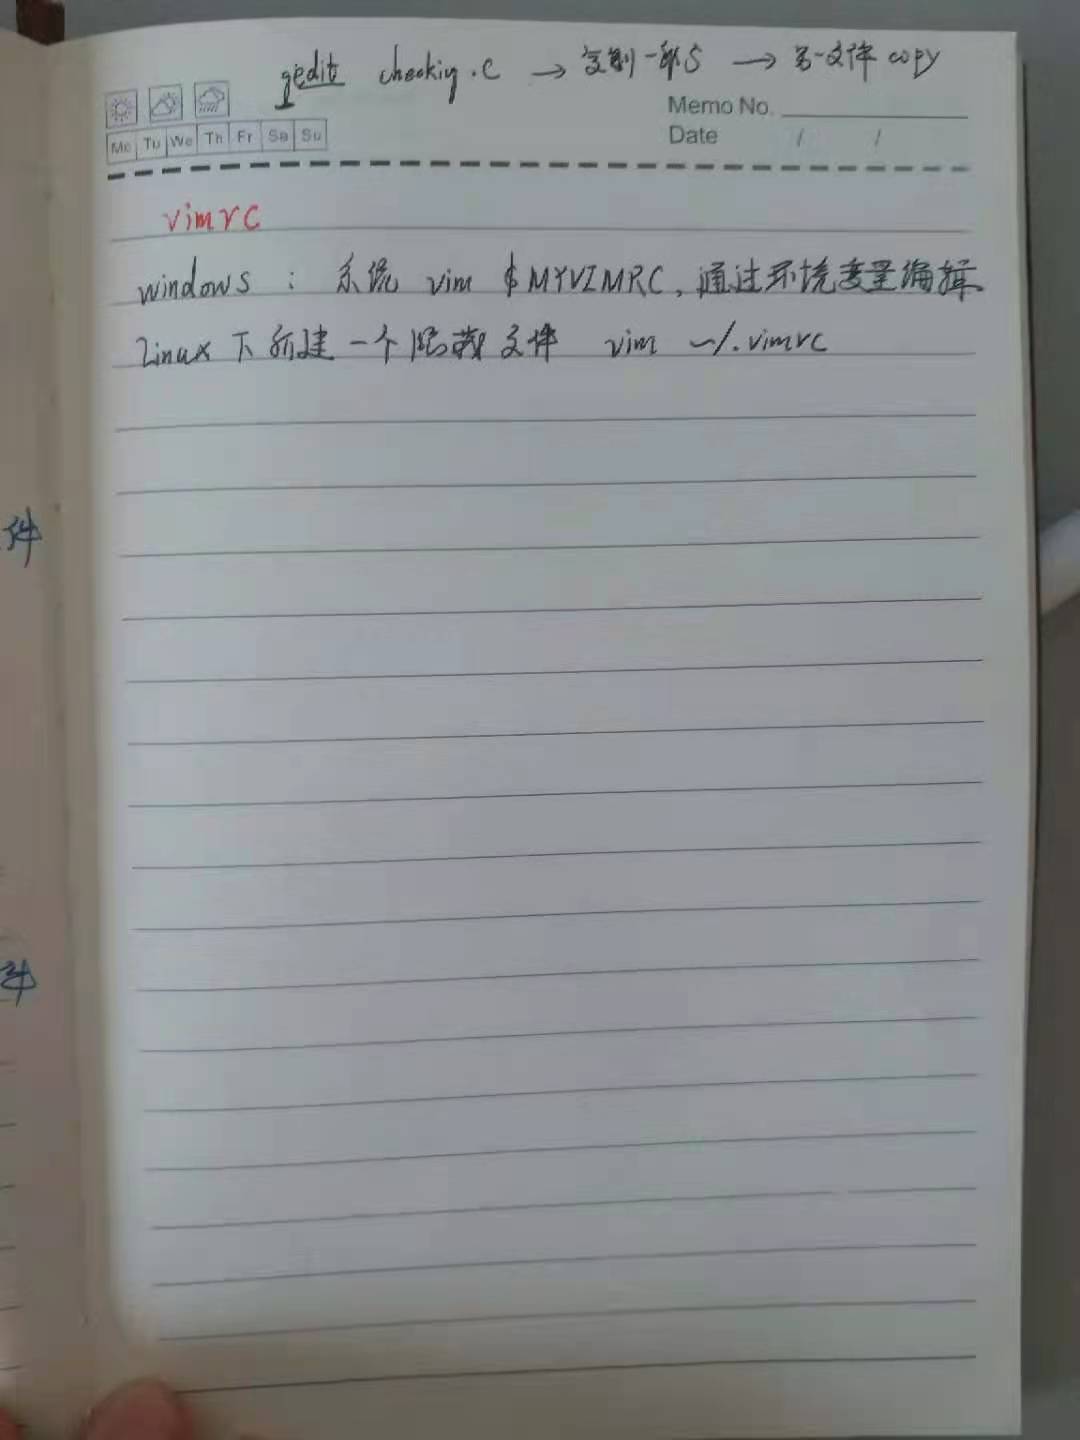 gedit checking.c → 复制一部分 → 另一文件 copy
Memo No.
Mo Tu We Th Fr Sa Su
Date / /
vimrc
windows : 系统 vim $MYVIMRC, 通过环境变量编辑
Linux 下新建一个隐藏文件 vim ~/.vimrc
件